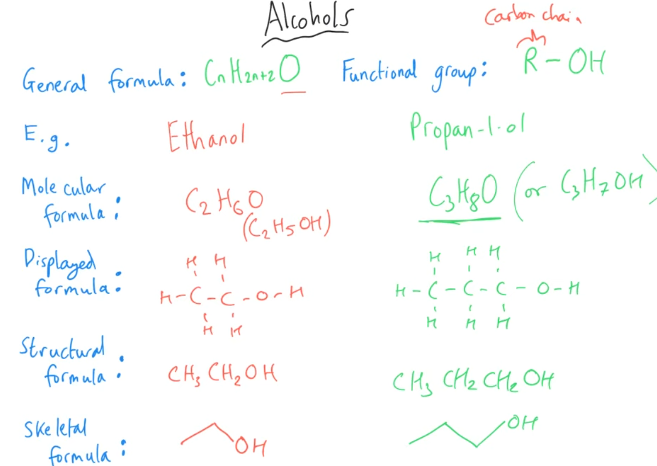 Alcohols
Carbon chain
General formula: CnH2n+2O Functional group: R-OH
E.g. Ethanol Propan-1-ol
Molecular formula: C2H6O (C2H5OH) C3H8O (or C3H7OH)
Displayed formula:
H H H H H
H-C-C-O-H H-C-C-C-O-H
H H H H H
Structural formula: CH3 CH2OH CH3 CH2 CH2OH
Skeletal formula: OH OH